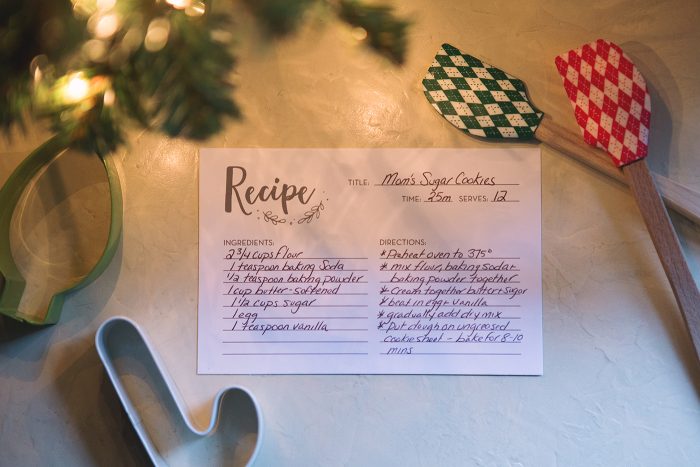 Recipe
TITLE: Mom's Sugar Cookies
TIME: 25m SERVES: 12
INGREDIENTS:
2 3/4 cups flour
1 teaspoon baking Soda
1/2 teaspoon baking powder
1 cup butter - softened
1 1/2 cups sugar
1 egg
1 teaspoon vanilla
DIRECTIONS:
* Preheat oven to 375°
* mix flour, baking soda +
baking powder together
* Cream together butter + sugar
* beat in egg + vanilla
* gradually add dry mix
* put dough on ungreased
cookie sheet - bake for 8-10
mins